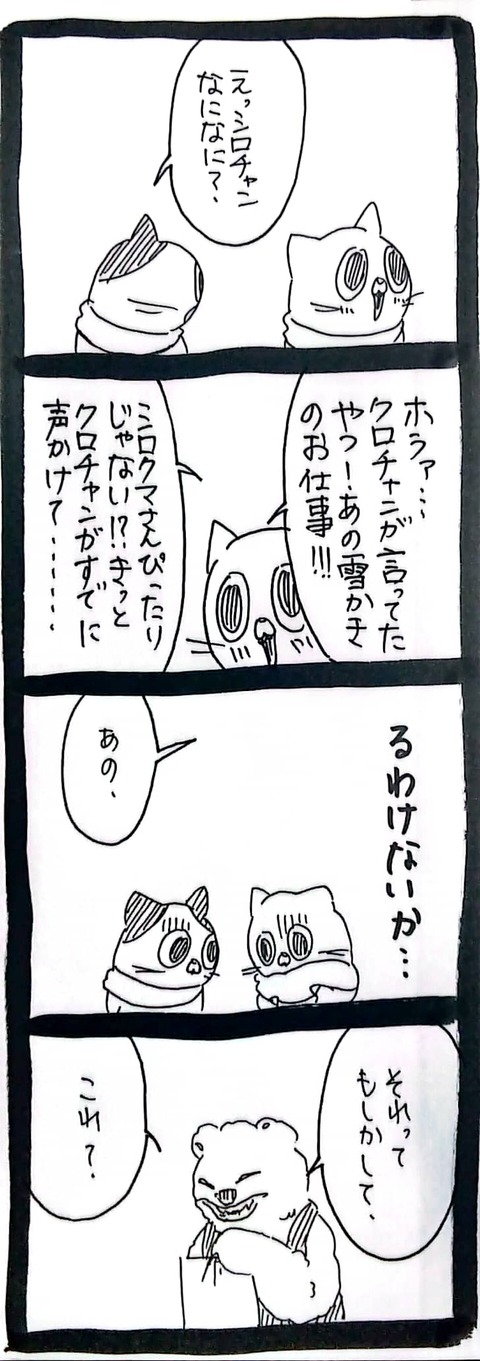 えっシロチャン
なになに?、
ホラァ…
クロチャンが言ってた
やつー、あの雪かき
のお仕事!!!
シロクマさんぴったり
じゃない!?きっと
クロチャンがすでに
声かけて……
るわけないか…
あの、
それって
もしかして、
これ?